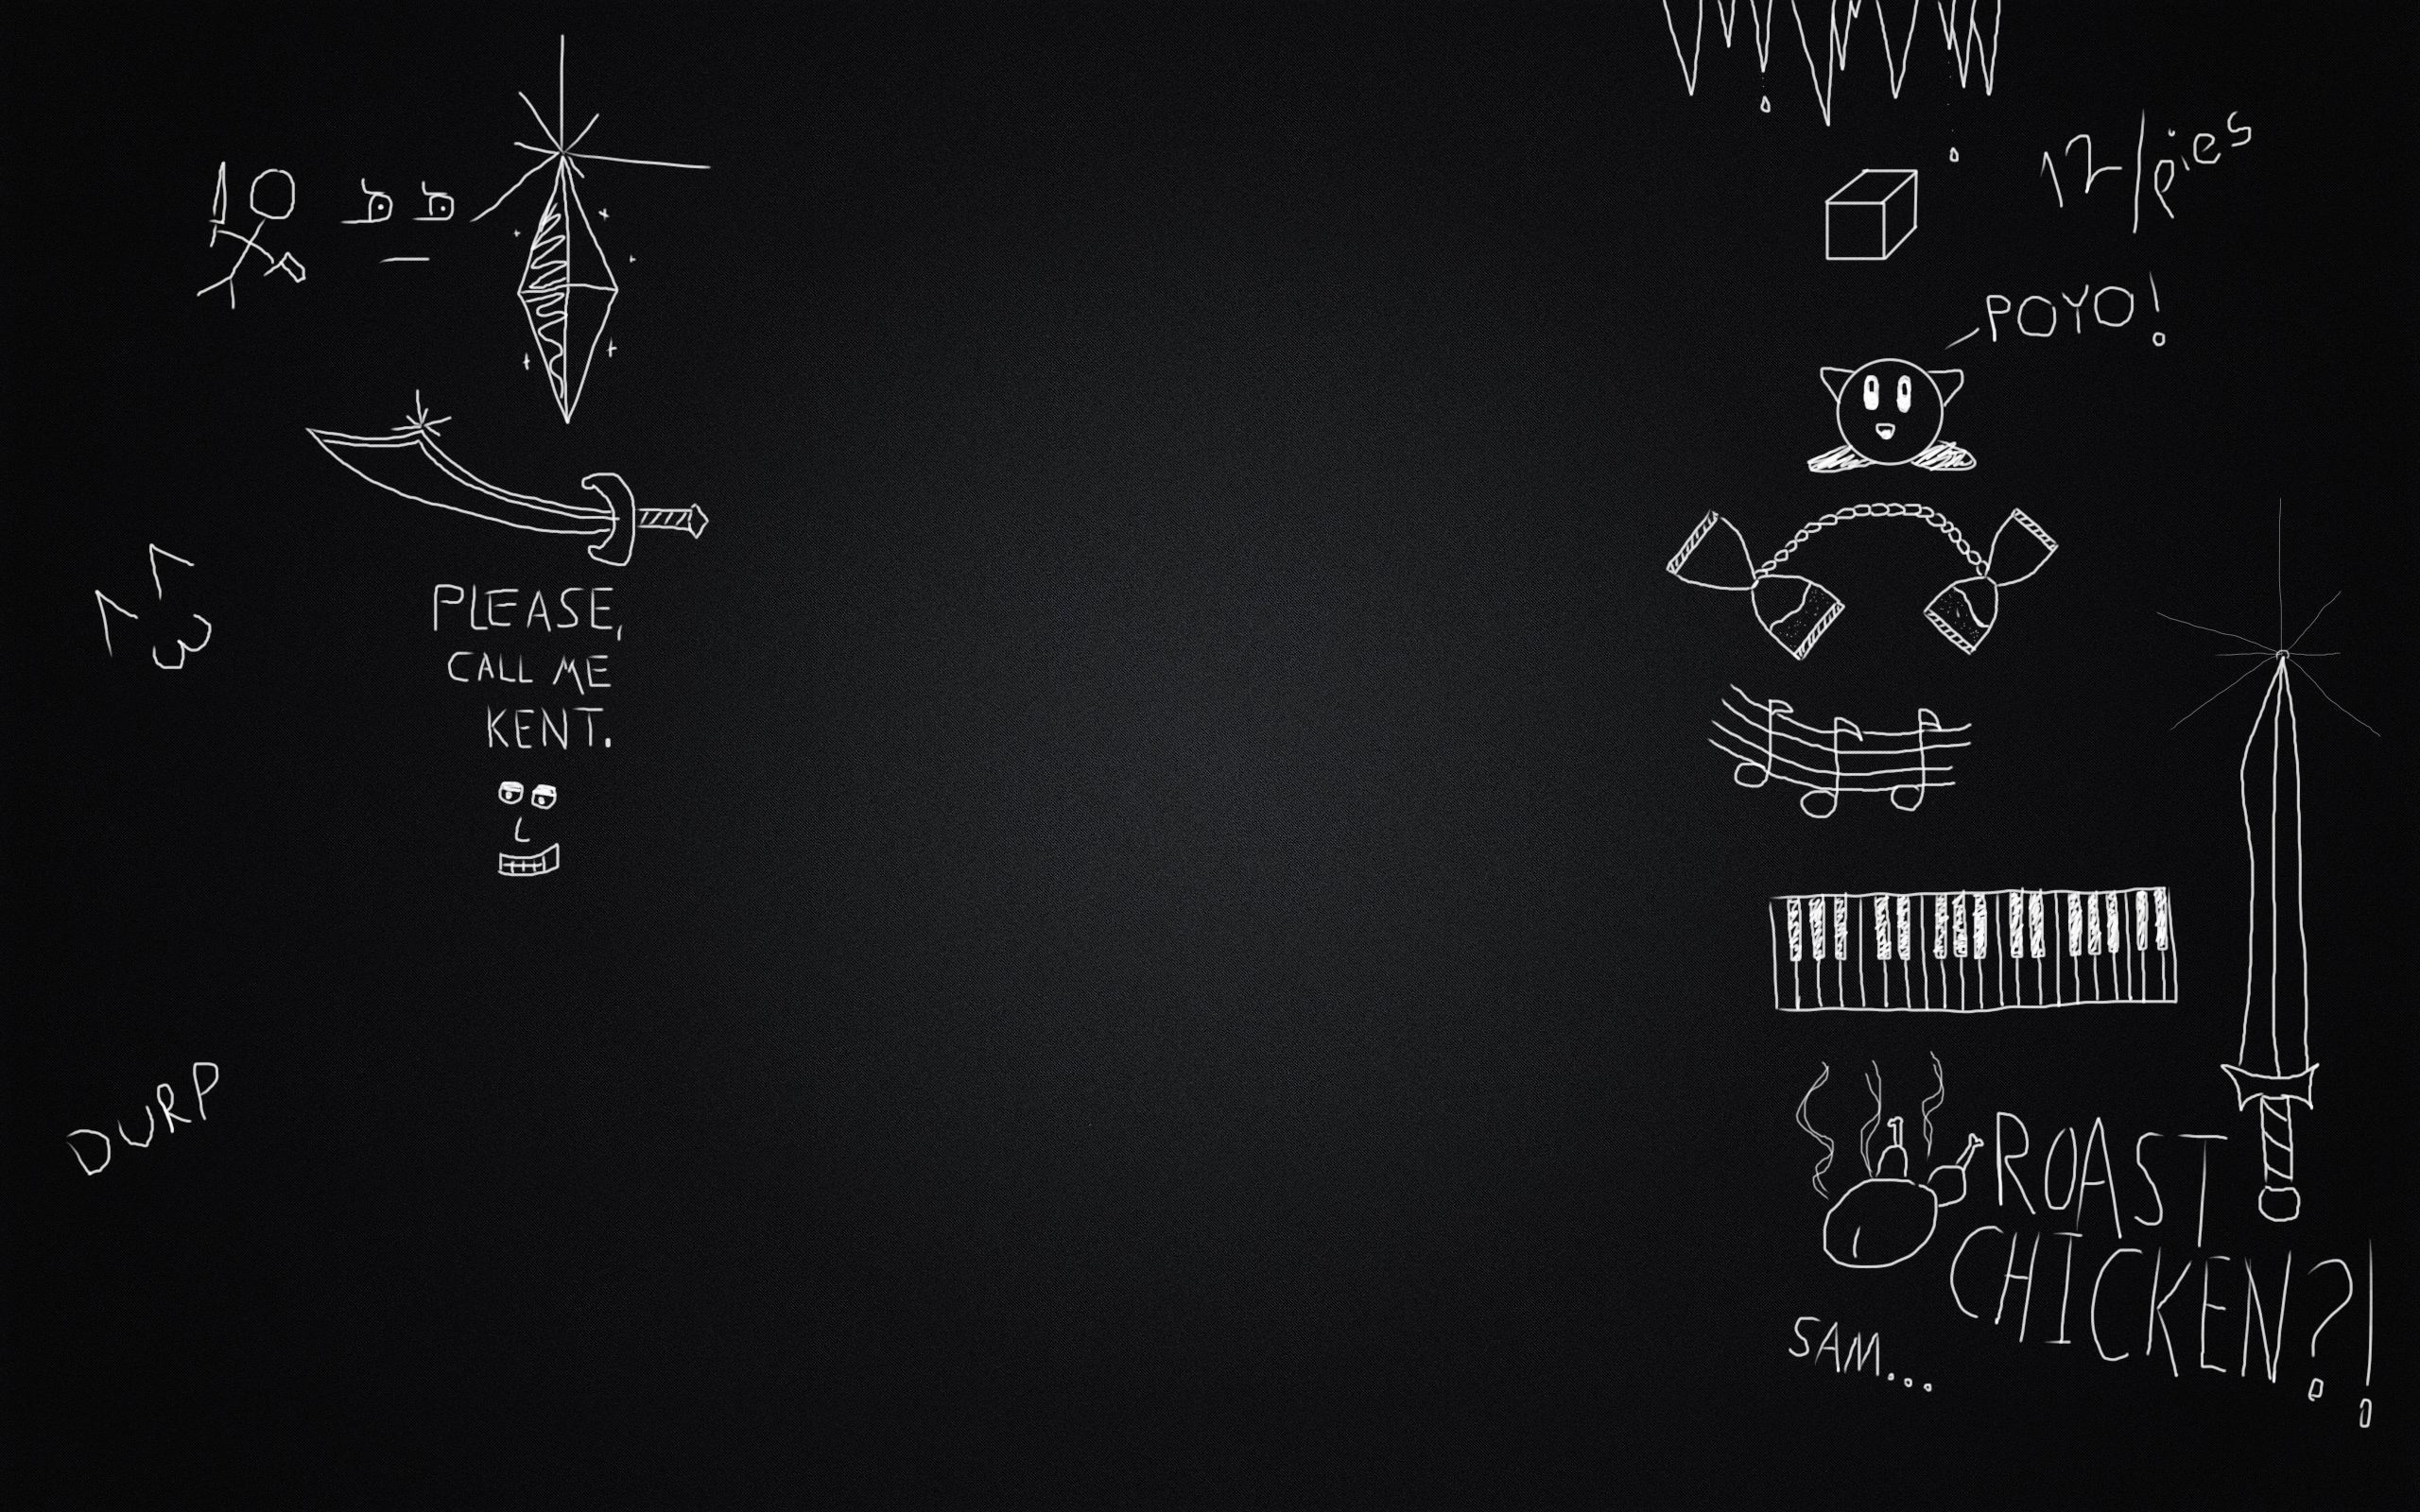 PLEASE,
CALL ME
KENT.
DURP
12/pies
POYO!
ROAST
CHICKEN?!
SAM...